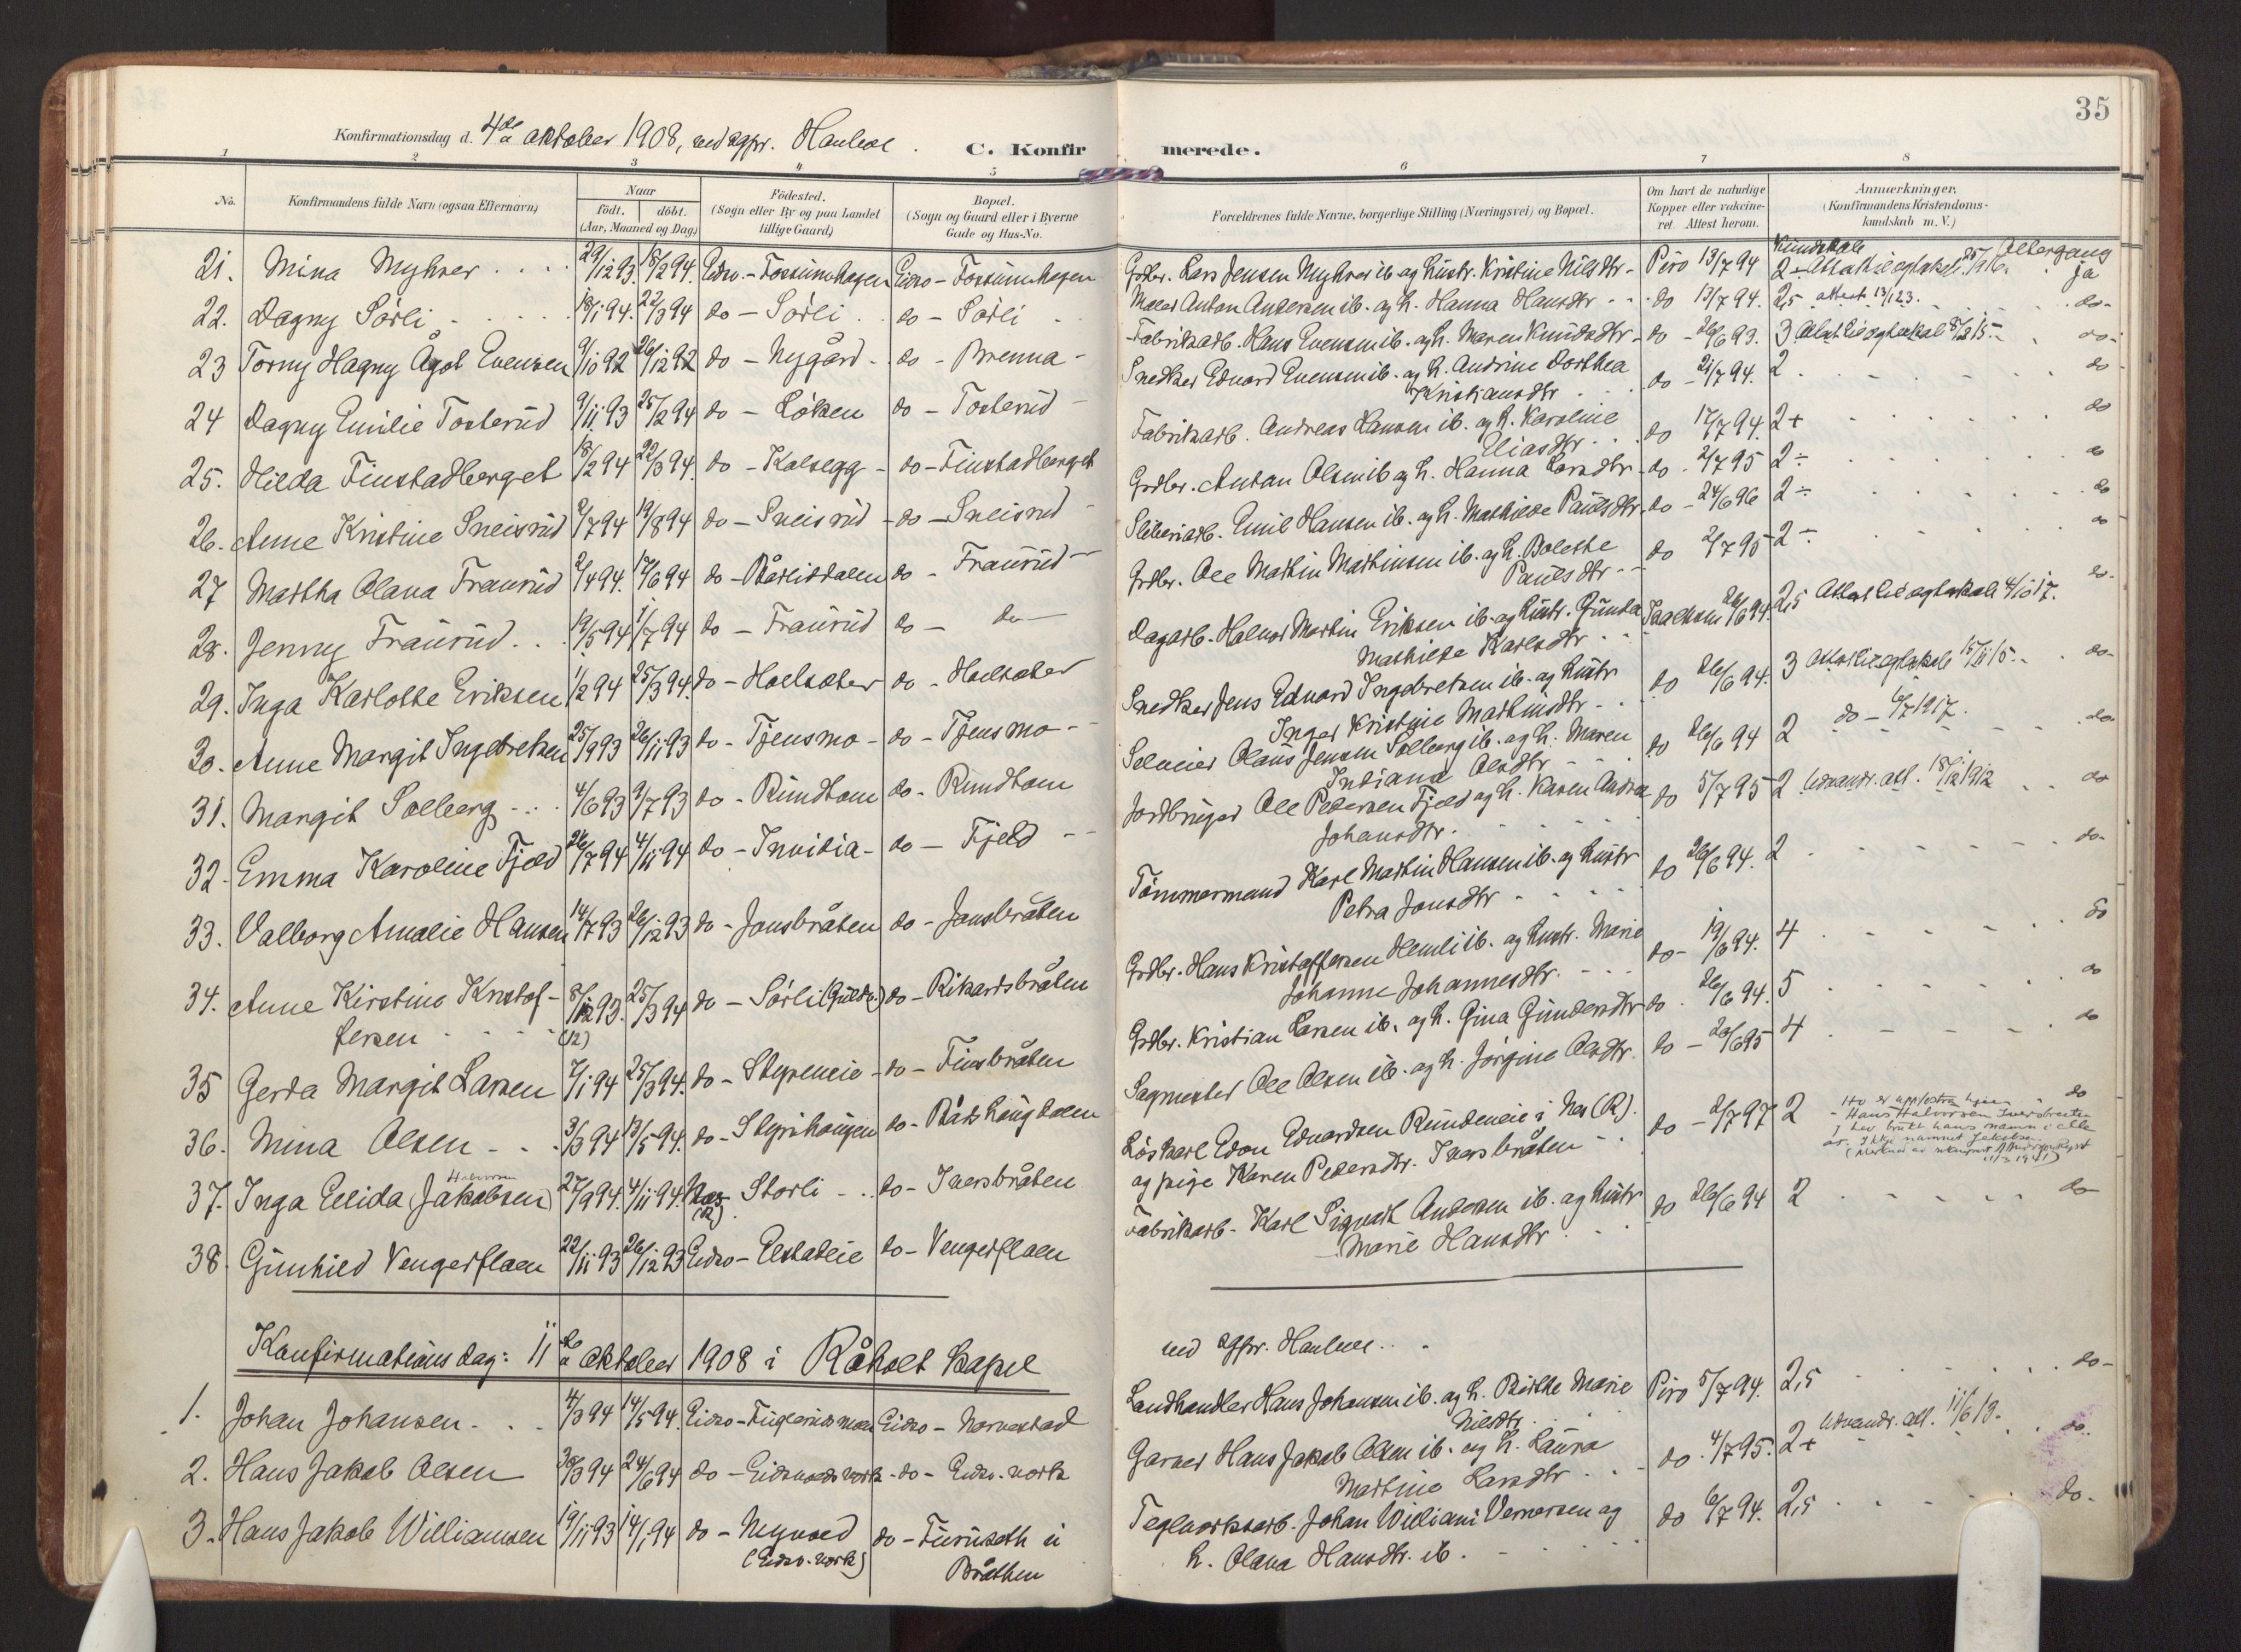 35
Konfirmationsdag d. 4de oktober 1908, ved sgpr. Hauboe.
C. Konfirmerede.
1 2 3 4 5 6 7 8
No.
Konfirmandens fulde Navn (ogsaa Efternavn)
Naar
födt. döbt.
(Aar, Maaned og Dag)
Födested.
(Sogn eller By og paa Landet
tillige Gaard)
Bopæl.
(Sogn og Gaard eller i Byerne
Gade og Hus-No.
Forældrenes fulde Navne, borgerlige Stilling (Næringsvei) og Bopæl.
Om havt de naturlige
Kopper eller vakcine-
ret Attest herom.
Anmærkninger.
(Konfirmandens Kristendoms-
kundskab m. V.)
Kundskab Altergang
21. Mina Myhrer 29/12 93. 18/2 94. Eidsv. - Fossumhagen Eidsv - Fossumhagen Grdbr. Lars Jensen Myhrer ib. og Hustr. Kristine Nilsdtr - Piro 13/7 94 2 ÷ ja
22. Dagny Sörli 18/1 94. 22/3 94 do - Sörli do - Sörli Maler Anton Andersen ib. og h. Hanna Hansdtr do 13/7 94. 2,5 attest 13/1 23. do-
23 Torny Hagny Ågot Evensen 9/10 92 26/12 92 do - Nygård - do - Brenna - Fabrikarb. Hans Evensen ib. og h. Maren Knudsdtr - do - 26/6 93. 3 do-
24 Dagny Emilie Tosterud 9/11 93 25/2 94 do - Löken do - Tosterud - Snedker Edvard Evensen ib. og h. Andrine Dorthea
Kristiansdtr do - 21/7 94. 2 do
25. Hilda Finstadberget 18/2 94 22/3 94. do - Kolsegg - do - Finstadberget Fabrikarb. Andreas Hansen ib. og h. Karoline
Eliasdtr do 17/7 94. 2+ do
26. Anne Kristine Sneisrud 2/7 94 19/8 94 do - Sneisrud - do - Sneisrud - Grdbr. Anton Olsen ib og h. Hanna Larsdtr - do - 2/7 95 2÷ do
27 Martha Olava Fraurud 2/4 94. 17/6 94 do - Bårlidalen do - Fraurud - Sliberiarb. Emil Hansen ib. og h. Mathilde Paulsdtr. do - 24/6 96 2÷ do
28. Jenny Fraurud 19/5 94 1/7 94 do - Fraurud do - do - Grdbr. Ole Martin Mathinsen ib. og h. Bolette
Paulsdtr - do 2/7 95 2÷ do
29. Inga Karlotte Eriksen 1/2 94 25/3 94. do - Holsæter do - Holsæter Dagarb. Halvor Martin Eriksen ib. og Hustr. Gunda
Mathilde Karlsdtr 26/6 94. 2,5 4/10 17. do-
30. Anne Margit Ingebretsen 25/9 93 26/11 93 do - Tjensmo - do - Tjensmo - Snedker Jens Edvard Ingebretsen ib. og Hustr
Inger Kristine Martinsdtr - do 26/6 94. 3 15/11 15. do-
31. Margit Solberg 4/6 93 9/7 93 do - Rundtom do - Rundtom Selveier Olaus Jensen Solberg ib. og h. Maren
Indiana Olsdtr do 26/6 94 2 do - 6/7 1917. do-
32. Emma Karoline Fjeld 26/7 94 4/11 94 do - Invilia - do - Fjeld - Jordbruger Ole Pedersen Fjeld og h. Karen Andrea
Johansdtr. do 5/7 95 2 Udvandr. att. 18/12 1912 do
33. Valborg Amalie Hansen 14/7 93 26/12 93 do - Jonsbråten do - Jonsbråten Tömmermand Karl Martin Hansen ib. og Hustr
Petra Jonsdtr do 26/6 94. 2 do-
34. Anne Kirstine Kristof-
fersen 8/12 93. (12) 25/3 94 do - Sörli (Guld.) do - Rikardsbråten Grdbr. Hans Kristoffersen Hemli ib. og Hustr. Marie
Johanne Johannesdtr. do - 19/6 94. 4 do
35 Gerda Margit Larsen 7/1 94 25/3 94. do - Styreneie - do - Finsbråten Grdbr. Kristian Larsen ib. og h. Gina Gundersdtr do - 26/6 94. 5 do
36. Mina Olsen 3/3 94 13/5 94. do - Styrihaugen do - Bårdshaugdalen Sagmester Ole Olsen ib. og h. Jörgine Olsdtr. do - 20/6 95 4 do
Halvorsen
37. Inga Elida (Jakobsen) 27/9 94. 4/11 94. Nes (R.) Storli - do - Iversbråten Löskarl Edon Edvardsen Rundeneie i Nes (R).
og pige Karen Pedersdtr. Iversbråten - do - 2/7 97 2 do
Hans Halvorsen Iversbråten
hev brukt hans namn i alle
år. Ikkje namnet Jakobsen
38. Gunhild Vengerflaen 22/11 93 26/12 93 Eidsv - Elstadeie do - Vengerflaen Fabrikarb. Karl Sigvart Andersen ib. og Hustr
Marie Hansdtr. do 26/6 94 2 do
Konfirmationsdag: 11te oktober 1908 i Råholt kapel ved sgpr. Hauboe.
1. Johan Johansen 4/3 94 14/5 94. Eidsv - Fuglerudsmoen Eidsv - Narvestad Landhandler Hans Johansen ib. og h. Birthe Marie
Nilsdtr. Piro 5/7 94. 2,5 do-
2. Hans Jakob Olsen 30/3 94 24/6 94 do - Eidsvolds verk - do - Eidsv. verk Garver Hans Jakob Olsen ib. og h. Laura
Martine Larsdtr do 4/7 95. 2+ Udvandr. att. 11/6 13. do.
3. Hans Jakob Williamsen 19/11 93 14/1 94 do - Nyvold
(Eidsv. verk) do - Furuseth i
Bråthen Teglverksarb. Johan William Vernersen og
h. Olava Hansdtr. ib. do 6/7 94. 2,5 do.